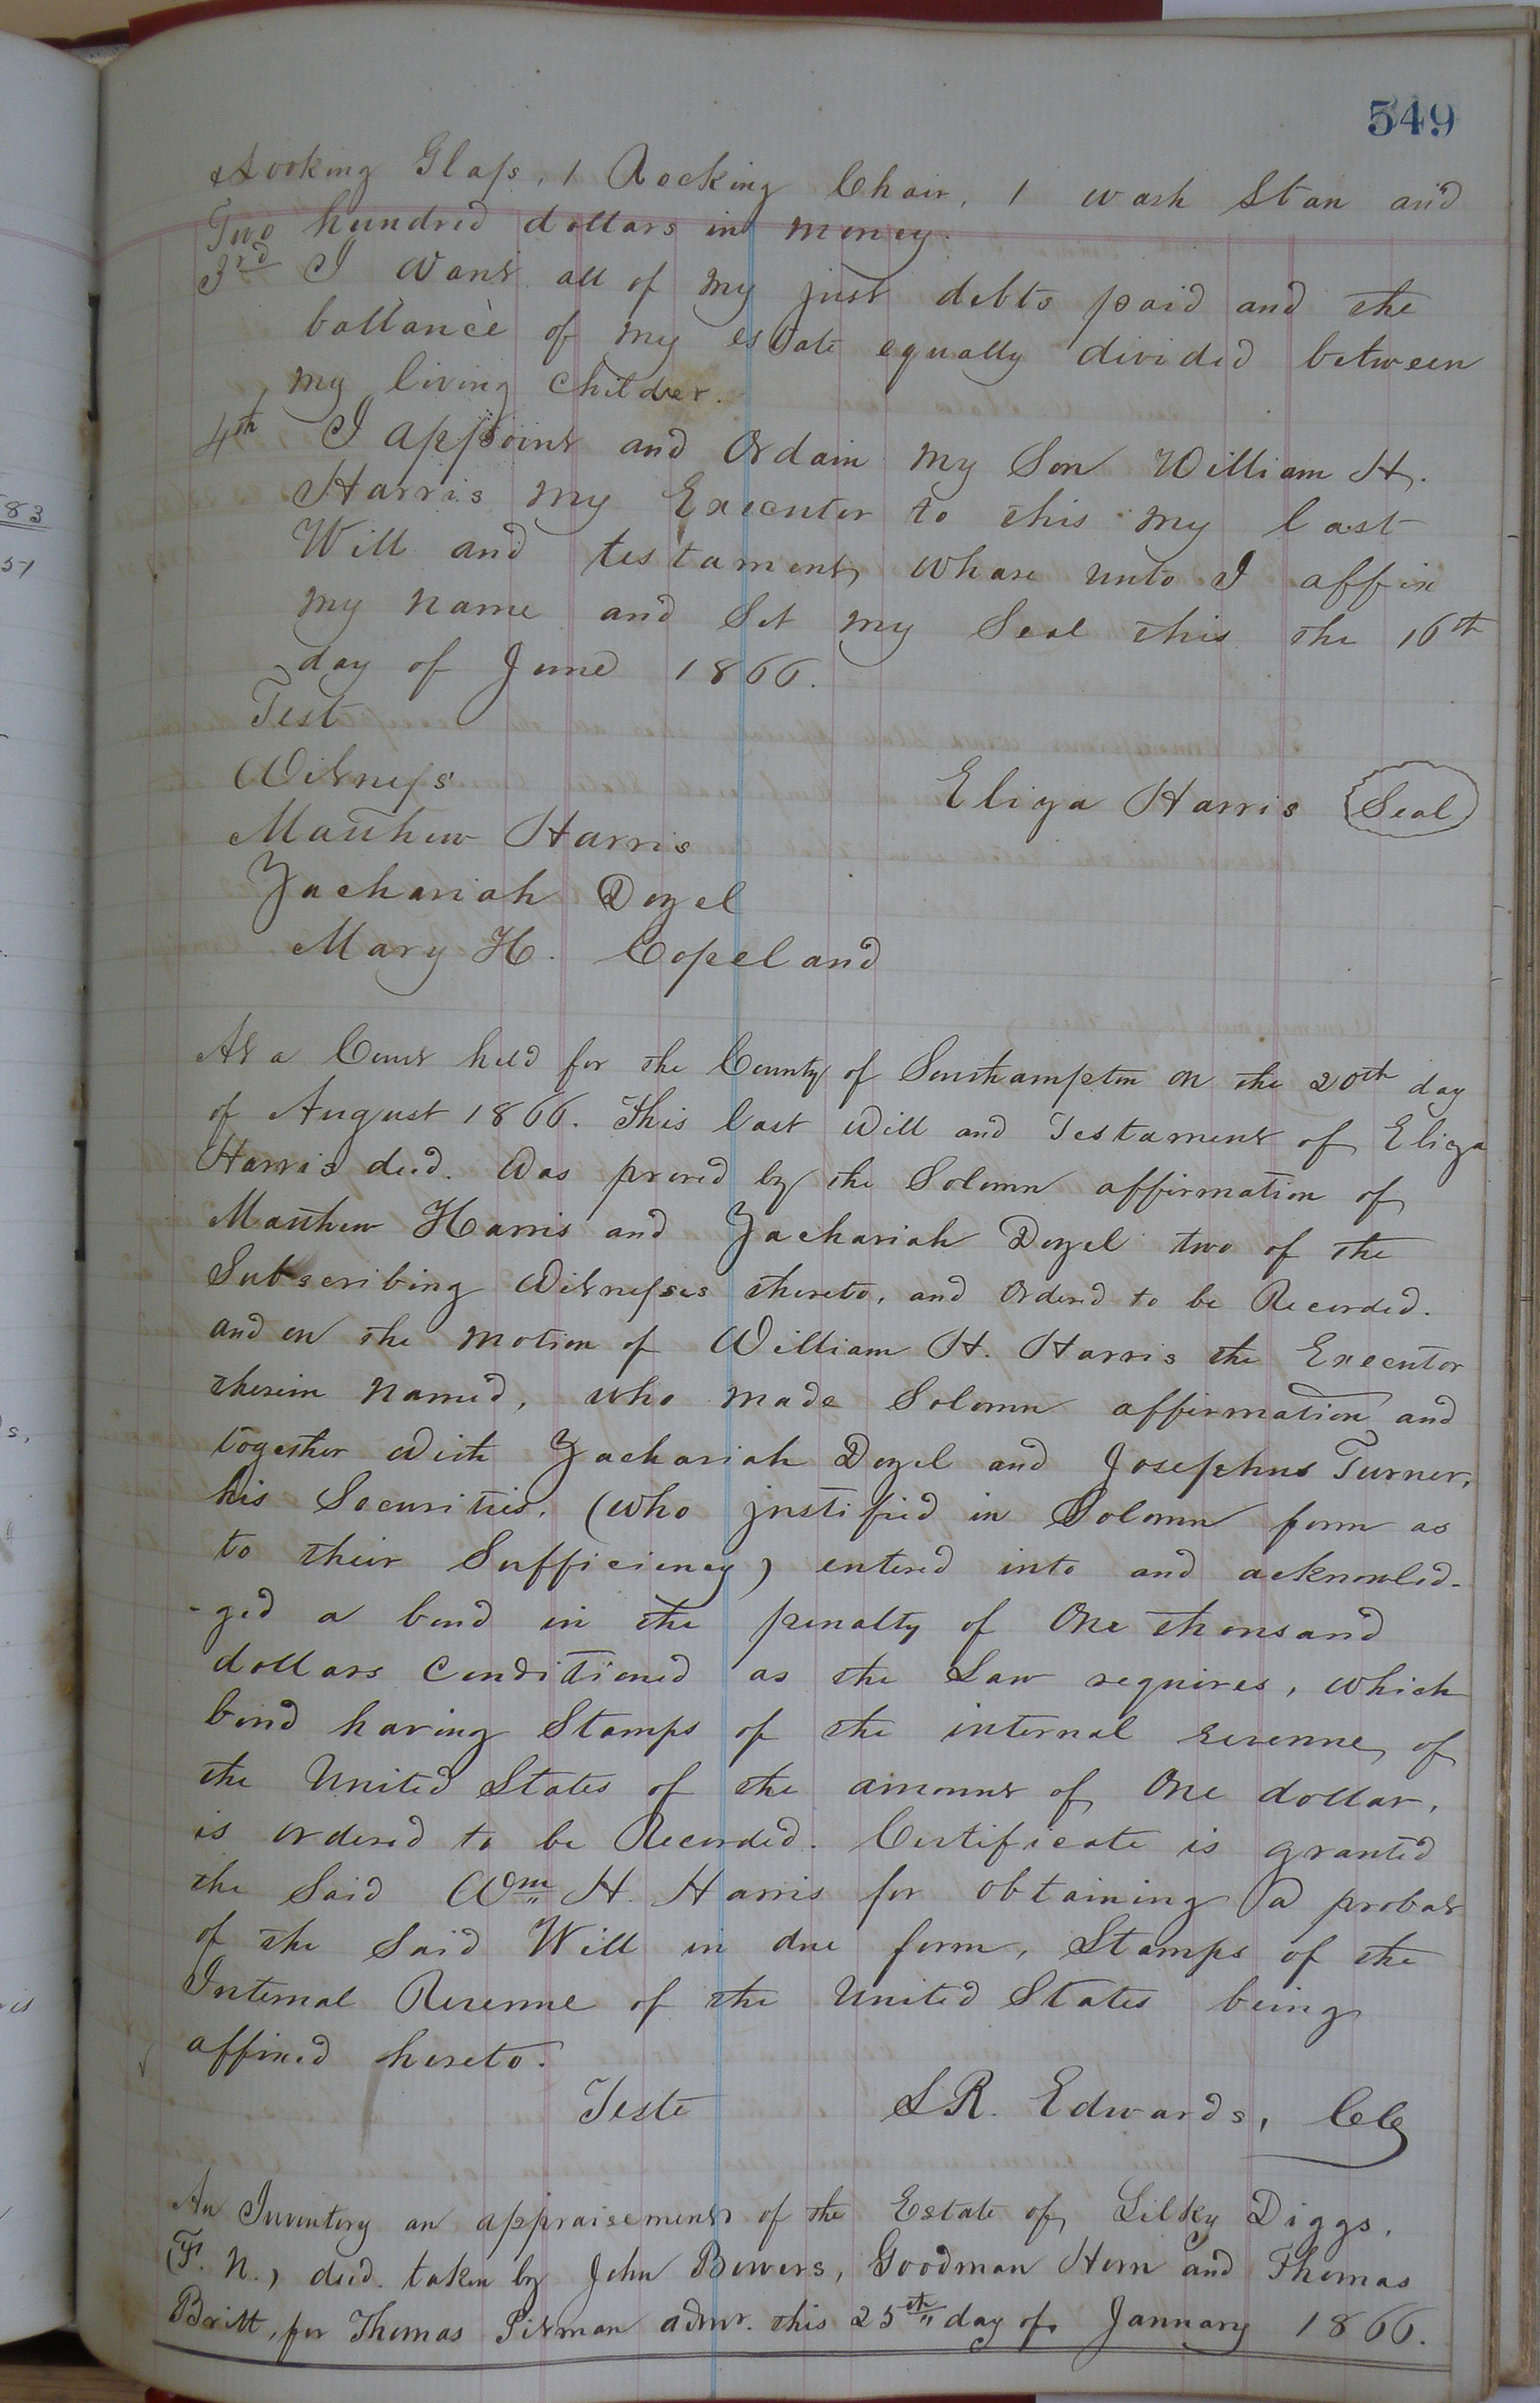 549
Looking Glass, 1 Rocking Chair, 1 wash Stan and
Two hundred dollars in money.
3rd I want all of my just debts paid and the
ballance of my estate equally divided between
my living childer.
4th I appoint and Ordain my Son William H.
Harris my Executor to this my last
Will and testament, whare unto I affix
my name and Set my Seal this the 16th
day of June 1866.
Test
Witness
Eliza Harris Seal
Matthew Harris
Zachariah Dozel
Mary H. Copeland
At a Court held for the County of Southampton on the 20th day
of August 1866. This last Will and Testament of Eliza
Harris decd. was proved by the Solemn affirmation of
Matthew Harris and Zachariah Dozel two of the
Subscribing Witnesses thereto, and Ordered to be Recorded.
and on the motion of William H. Harris the Executor
therein named, who made Solemn affirmation and
together with Zachariah Dozel and Josephus Turner,
his Securities, (who justified in Solemn form as
to their Sufficiency) entered into and acknowled-
-ged a bond in the penalty of One thousand
dollars Conditioned as the Law requires, which
bond having Stamps of the internal revenue of
the United States of the amount of One dollar,
is ordered to be Recorded. Certificate is granted
the Said Wm H. Harris for obtaining a probat
of the Said Will in due form, Stamps of the
Internal Revenue of the United States being
affixed hereto.
Teste L R. Edwards, CC
An Inventory an appraisement of the Estate of Silky Diggs,
(F. N.) decd. taken by John Bowers, Goodman Horn and Thomas
Britt, for Thomas Pitman admr. this 25th day of January 1866.
83
51